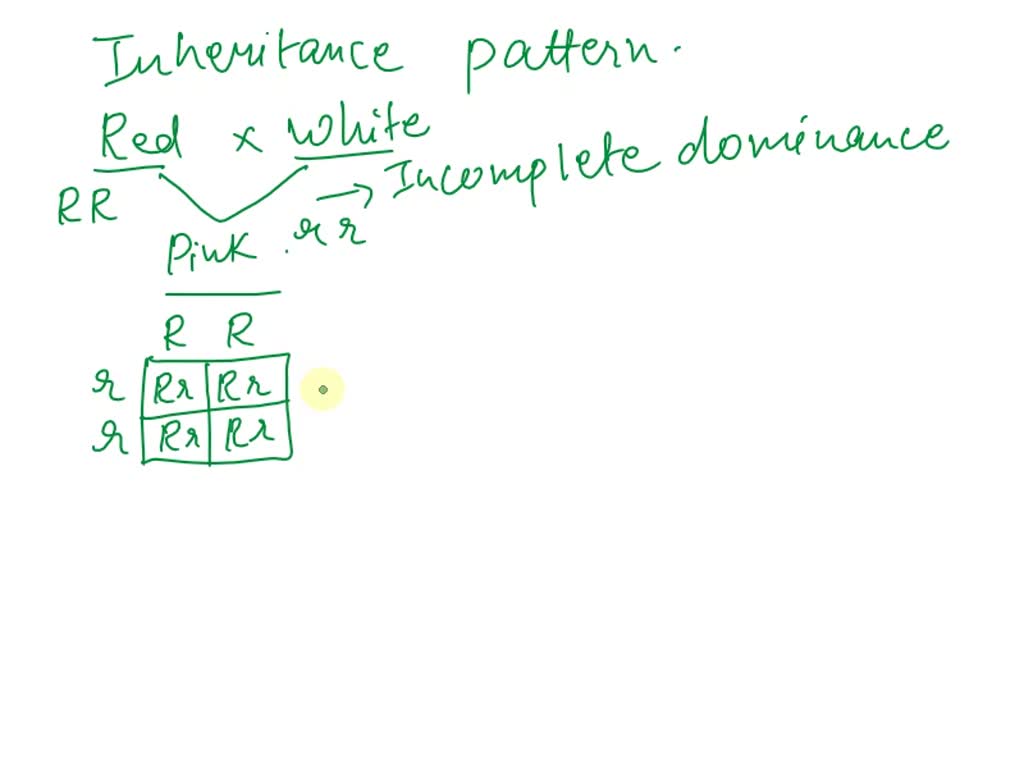 Inheritance pattern.
Red × White
→ Incomplete dominance
RR
rr
Pink.
R R
r Rr Rr
r Rr Rr